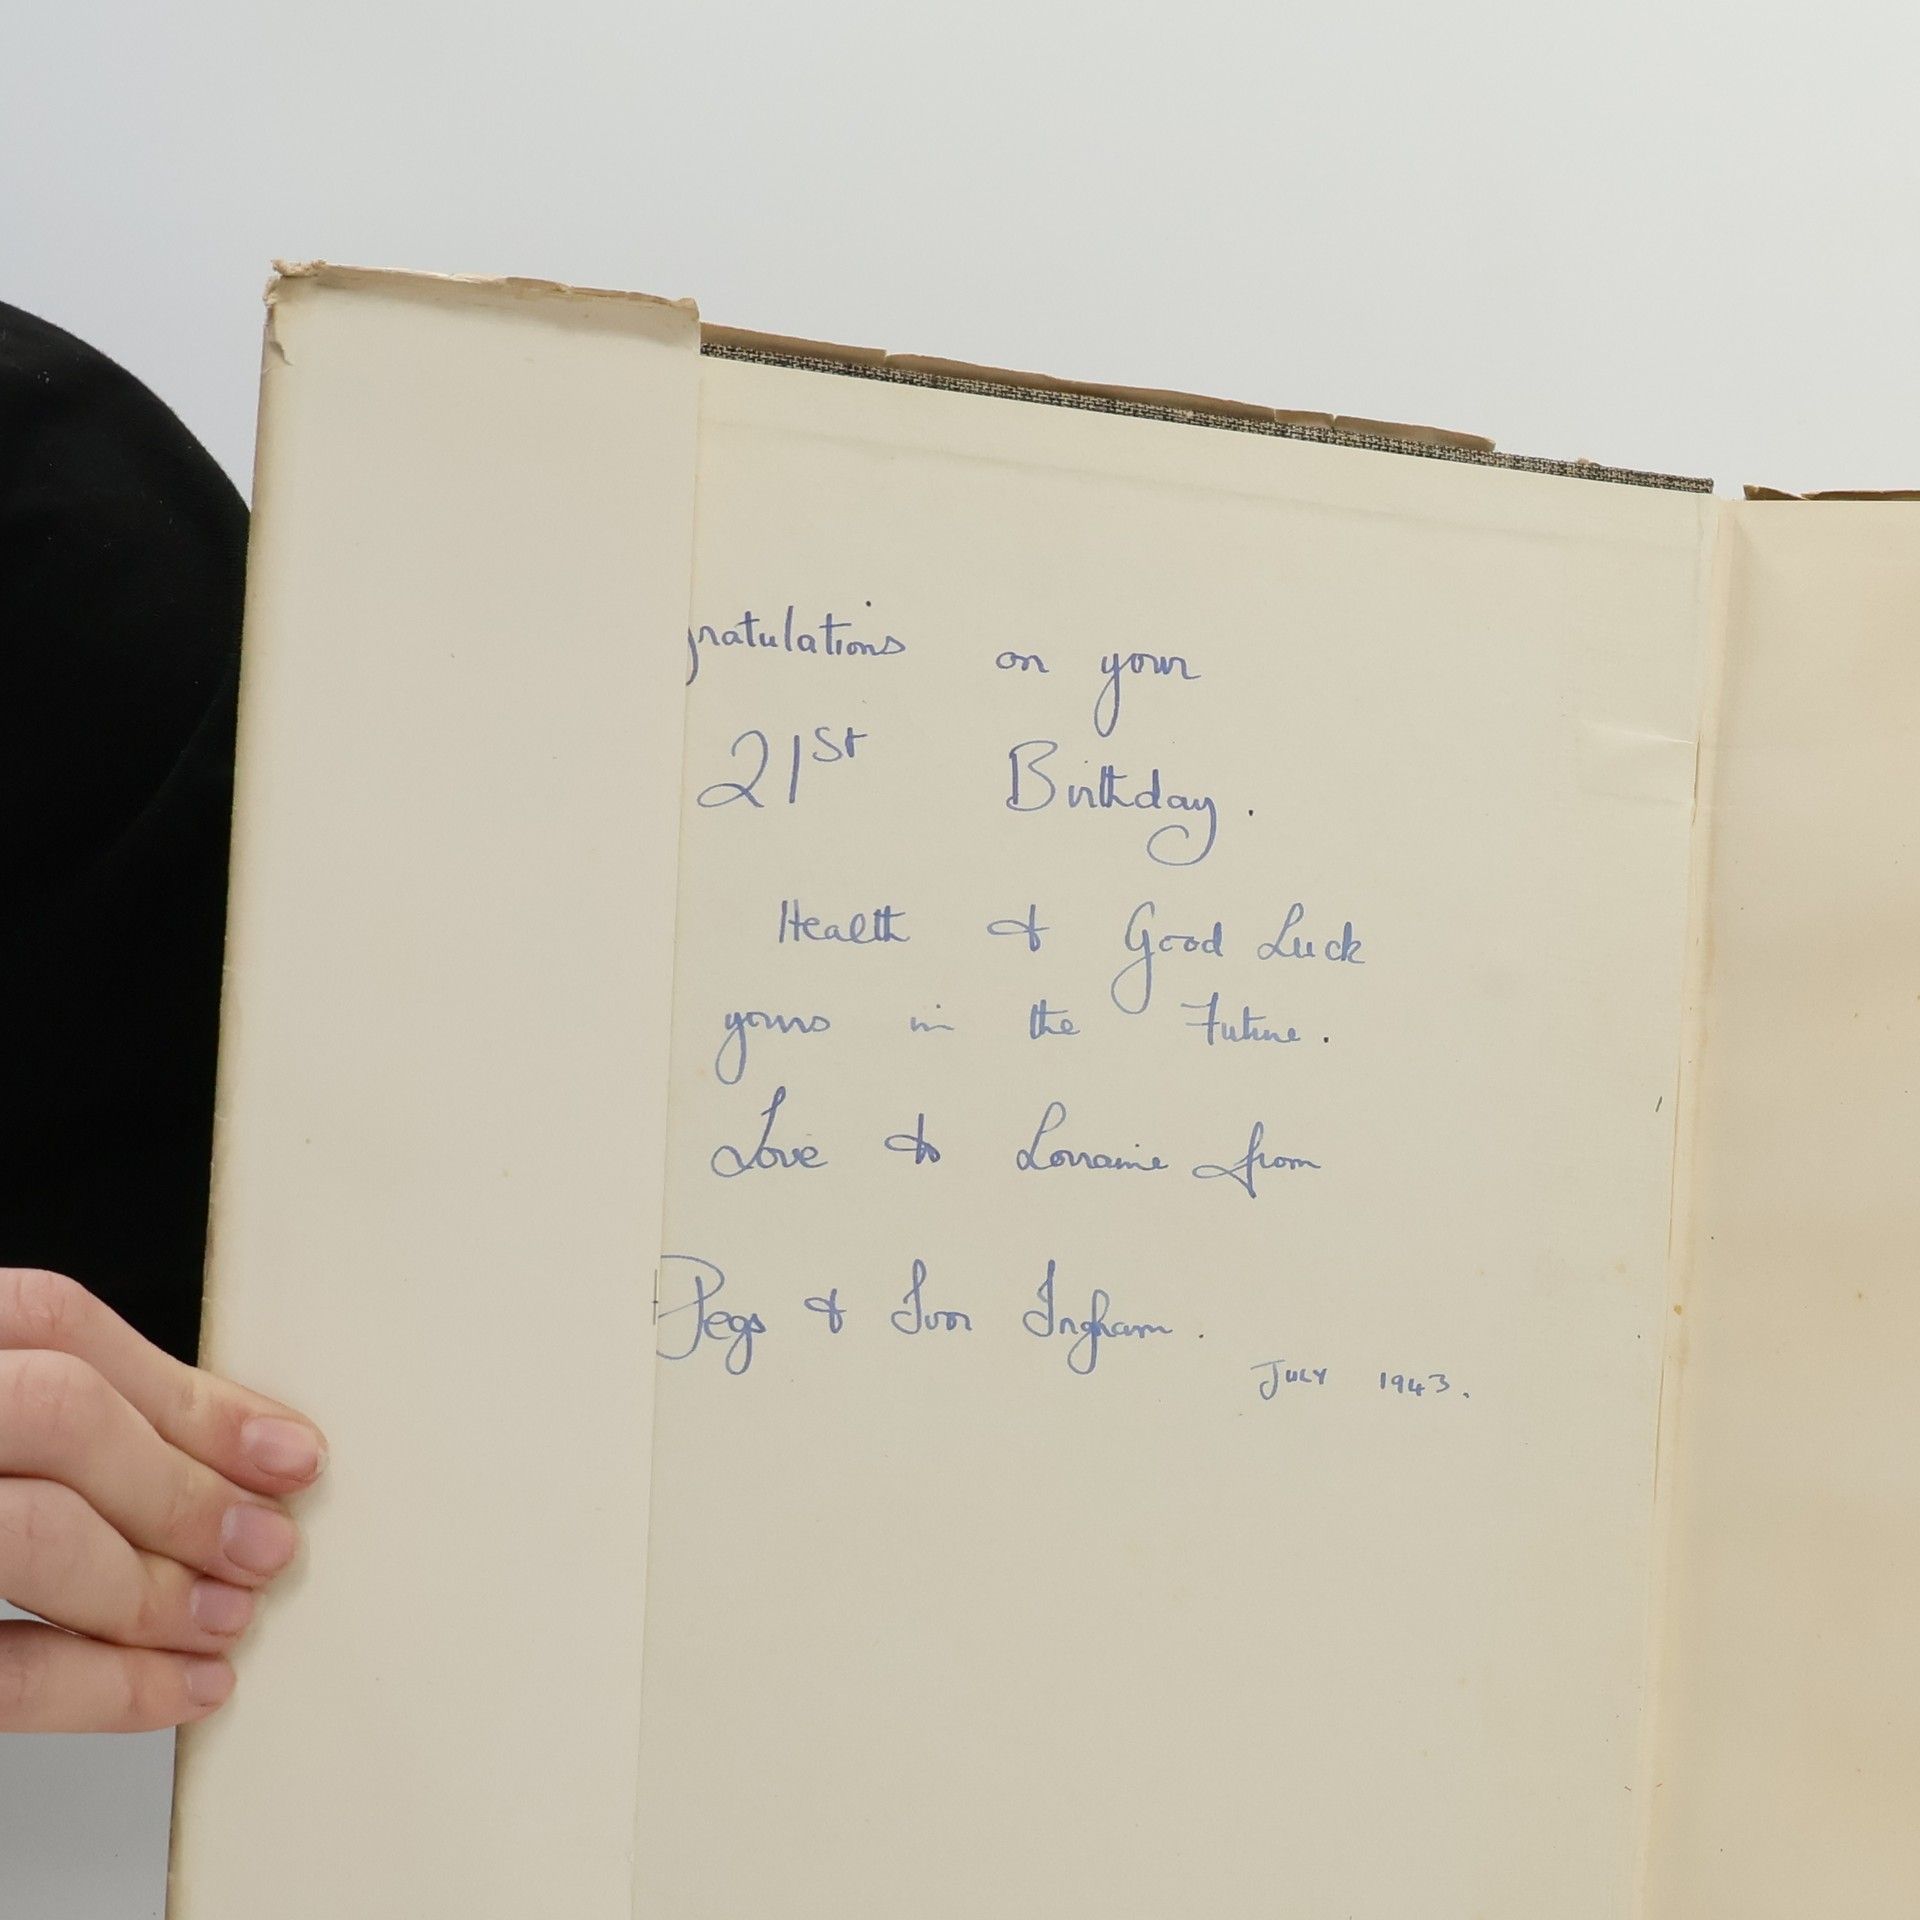 gratulations on your
21st Birthday.
Health & Good Luck
yours in the Future.
Love to Lorraine from
Pegs & Ivor Ingham.
July 1943.